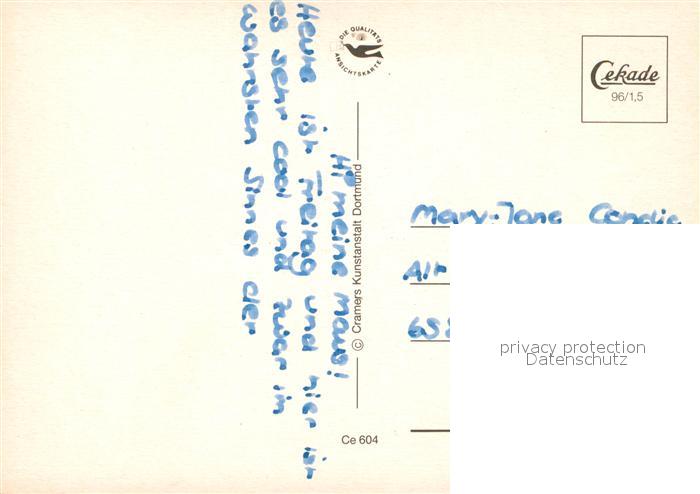 Hi meine Maus!
Heute ist Freitag und hier ist
es sehr cool und zwar im
wahrsten Sinnes der
DIE QUALITÄTS
ANSICHTSKARTE
© Cramers Kunstanstalt Dortmund
Ce 604
Cekade
96/1,5
Mary-Jane
Alt
65
privacy protection
Datenschutz